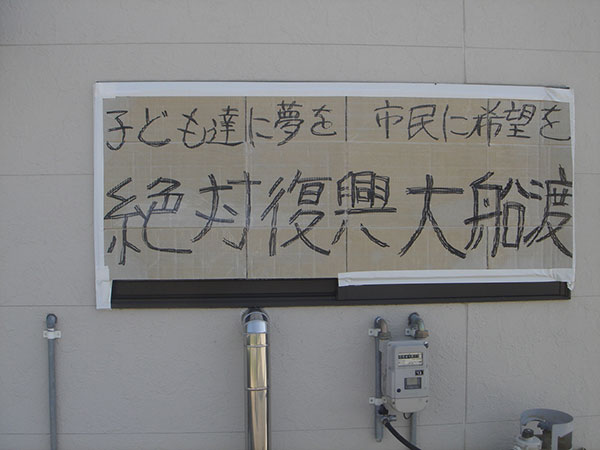 子ども達に夢を 市民に希望を
絶対復興大船渡